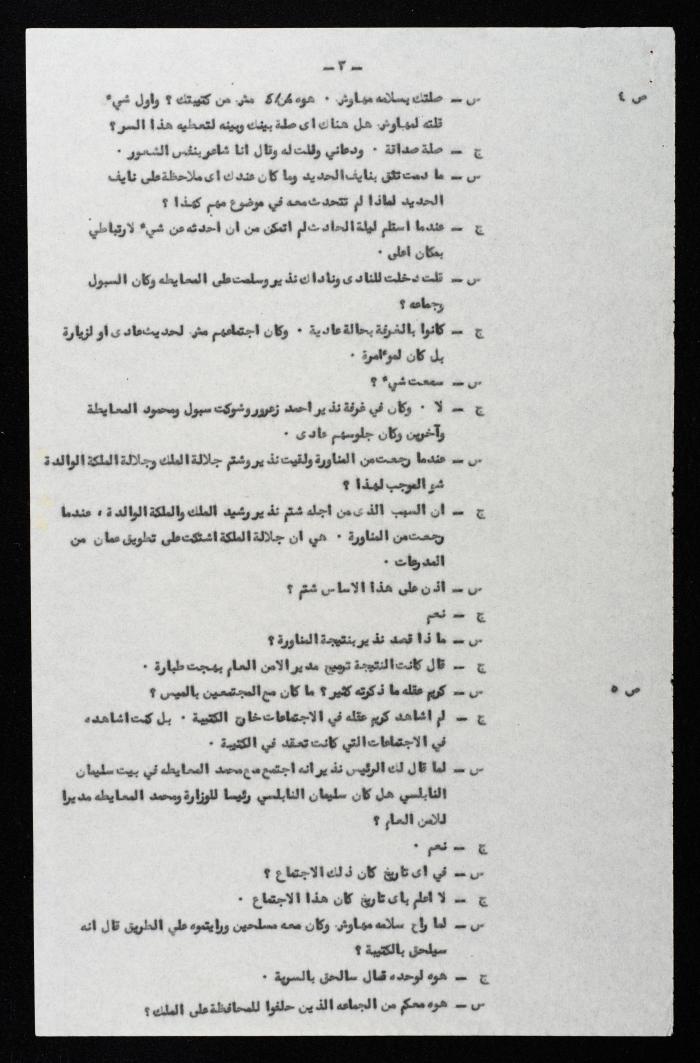 — ٣ —
ص ٤
س — صلتك بسلامه مهاوش ٠ هوه مش من كتيبتك ؟ واول شيء
قلته لمهاوش هل هناك اى صلة بينك وبينه لتعطيه هذا السر ؟
ج — صلة صداقة ٠ ودعاني وقلت له وقال انا شاعر بنفس الشعور ٠
س — ما دمت تثق بنايف الحديد وما كان عندك اى ملاحظة على نايف
الحديد لماذا لم تتحدث معه في موضوع مهم كهذا ؟
ج — عندما استلم ليلة الحادث لم اتمكن من ان احدثه عن شيء لارتباطي
بمكان اعلى ٠
س — قلت دخلت للنادى وناداك نذير وسلمت على المعايطه وكان السبول
وجماعه ؟
ج — كانوا بالغرفة بحالة عادية ٠ وكان اجتماعهم مش لحديث عادى او لزيارة
بل كان لموءامرة ٠
س — سمعت شيء ؟
ج — لا ٠ وكان في غرفة نذير احمد زعرور وشوكت سبول ومحمود المعايطة
وآخرين وكان جلوسهم عادى ٠
س — عندما رجعت من المناورة ولقيت نذير وشتم جلالة الملك وجلالة الملكة الوالدة
شو الموجب لهذا ؟
ج — ان السبب الذى من اجله شتم نذير رشيد الملك والملكة الوالدة ، عندما
رجعت من المناورة ٠ هي ان جلالة الملكة اشتكت على تطويق عمان من
المدرعات ٠
س — اذن على هذا الاساس شتم ؟
ج — نعم
س — ماذا قصد نذير بنتيجة المناورة ؟
ج — قال كانت النتيجة ترميج مدير الامن العام بهجت طبارة ٠
ص ٥
س — كريم عقله ما ذكرته كثير ؟ ما كان مع المجتمعين بالميس ؟
ج — لم اشاهد كريم عقله في الاجتماعات خارج الكتيبة ٠ بل كنت اشاهده
في الاجتماعات التي كانت تعقد في الكتيبة ٠
س — لما قال لك الرئيس نذير انه اجتمع مع محمد المعايطه في بيت سليمان
النابلسي هل كان سليمان النابلسي رئيسا للوزارة ومحمد المعايطه مديرا
للامن العام ؟
ج — نعم ٠
س — في اى تاريخ كان ذلك الاجتماع ؟
ج — لا اعلم باى تاريخ كان هذا الاجتماع ٠
س — لما راح سلامه مهاوش وكان معه مسلحين ورايتموه علي الطريق قال انه
سيلحق بالكتيبة ؟
ج — هوه لوحده قال سالحق بالسرية ٠
س — هوه محكم من الجماعه الذين حلفوا للمحافظة على الملك ؟